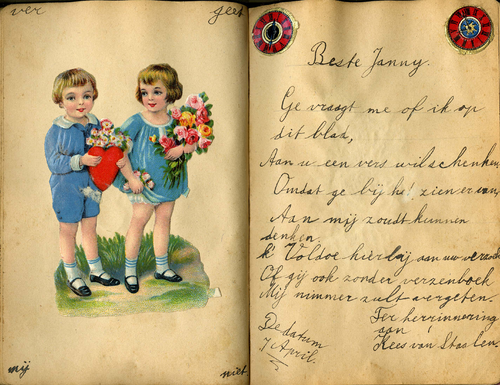 ver geet
mij niet
Beste Janny.
Ge vraagt me of ik op
dit blad,
Aan u een vers wil schenken,
Omdat ge bij het zien er van,
Aan mij zoudt kunnen
denken.
k' Voldoe hierbij aan uw verzoek
Of gij ook zonder verzenboek
Mij nimmer zult vergeten
De datum
7 April.
Ter herrinnering
aan
Kees van